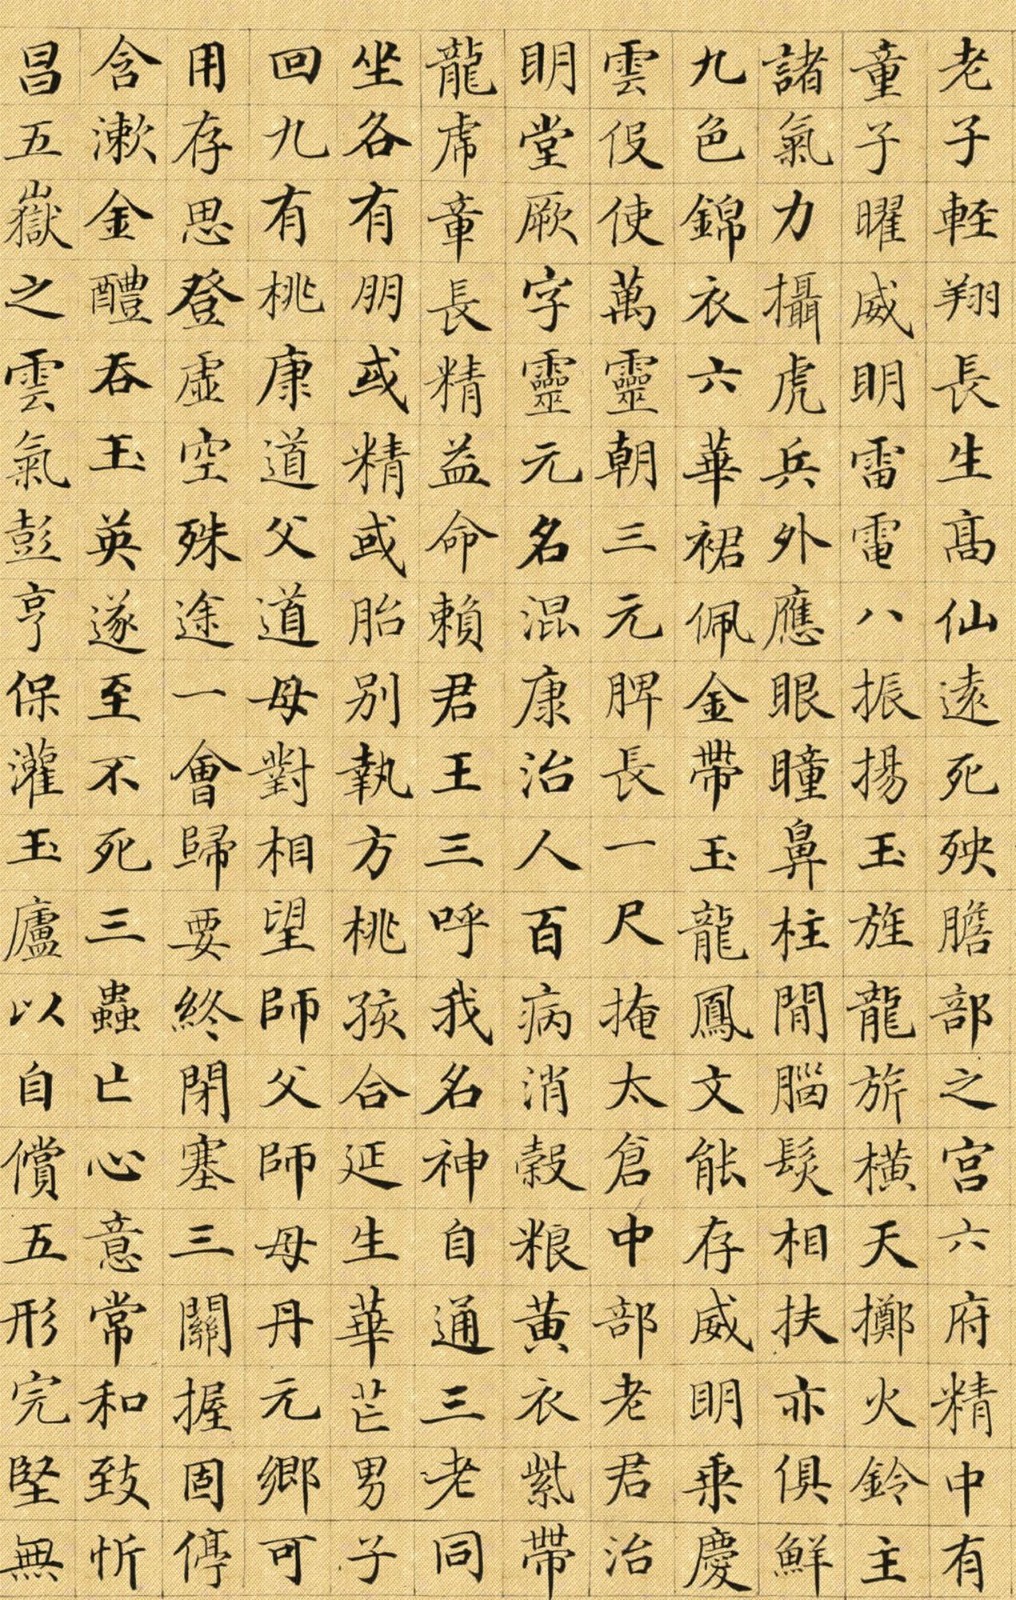 老子軽翔長生高仙遠死殃膽部之宮六府精中有
童子曜威明雷電八振揚玉旌龍旂橫天擲火鈴主
諸氣力攝虎兵外應眼瞳鼻柱間腦髮相扶亦俱鮮
九色錦衣六華裙佩金帶玉龍鳳文能存威明乗慶
雲伇使萬靈朝三元脾長一尺掩太倉中部老君治
明堂厥字靈元名混康治人百病消穀粮黃衣紫帶
龍虎章長精益命賴君王三呼我名神自通三老同
坐各有朋或精或胎別執方桃孩合延生華芒男子
回九有桃康道父道母對相望師父師母丹元鄉可
用存思登虛空殊途一會歸要終閉塞三關握固停
含漱金醴吞玉英遂至不死三蟲亡心意常和致忻
昌五嶽之雲氣彭亨保灌玉廬以自償五形完堅無